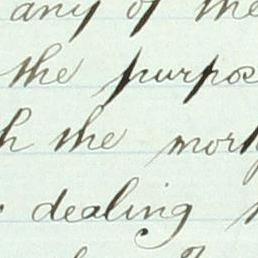 any of the
the purpos
h the mor
dealing